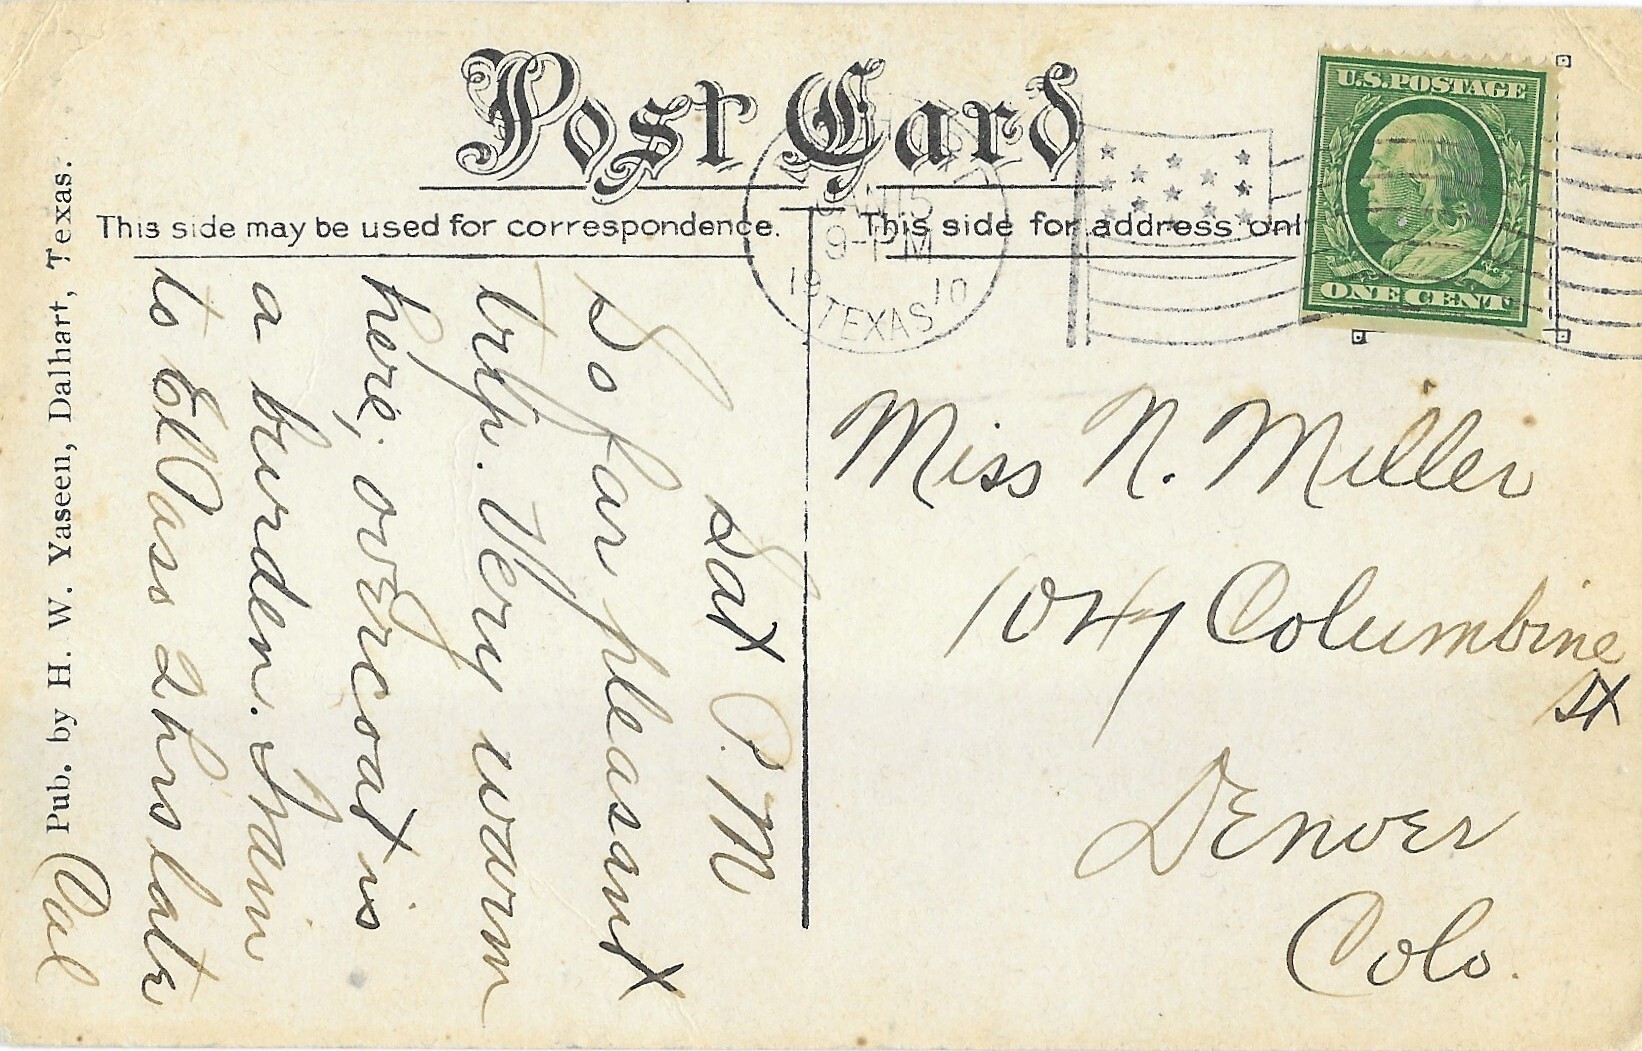 Post Card
This side may be used for correspondence.
This side for address onl
U.S. POSTAGE
ONE CENT
JAN 15
9-PM
1910
TEXAS
Pub. by H. W. Yaseen, Dalhart, Texas.
Sat P.M
So far pleasant
trip. Very warm
here, overcoat is
a burden. Train
to El Paso 2 hrs late
Pal
Miss N. Miller
1047 Columbine
St
Denver
Colo.